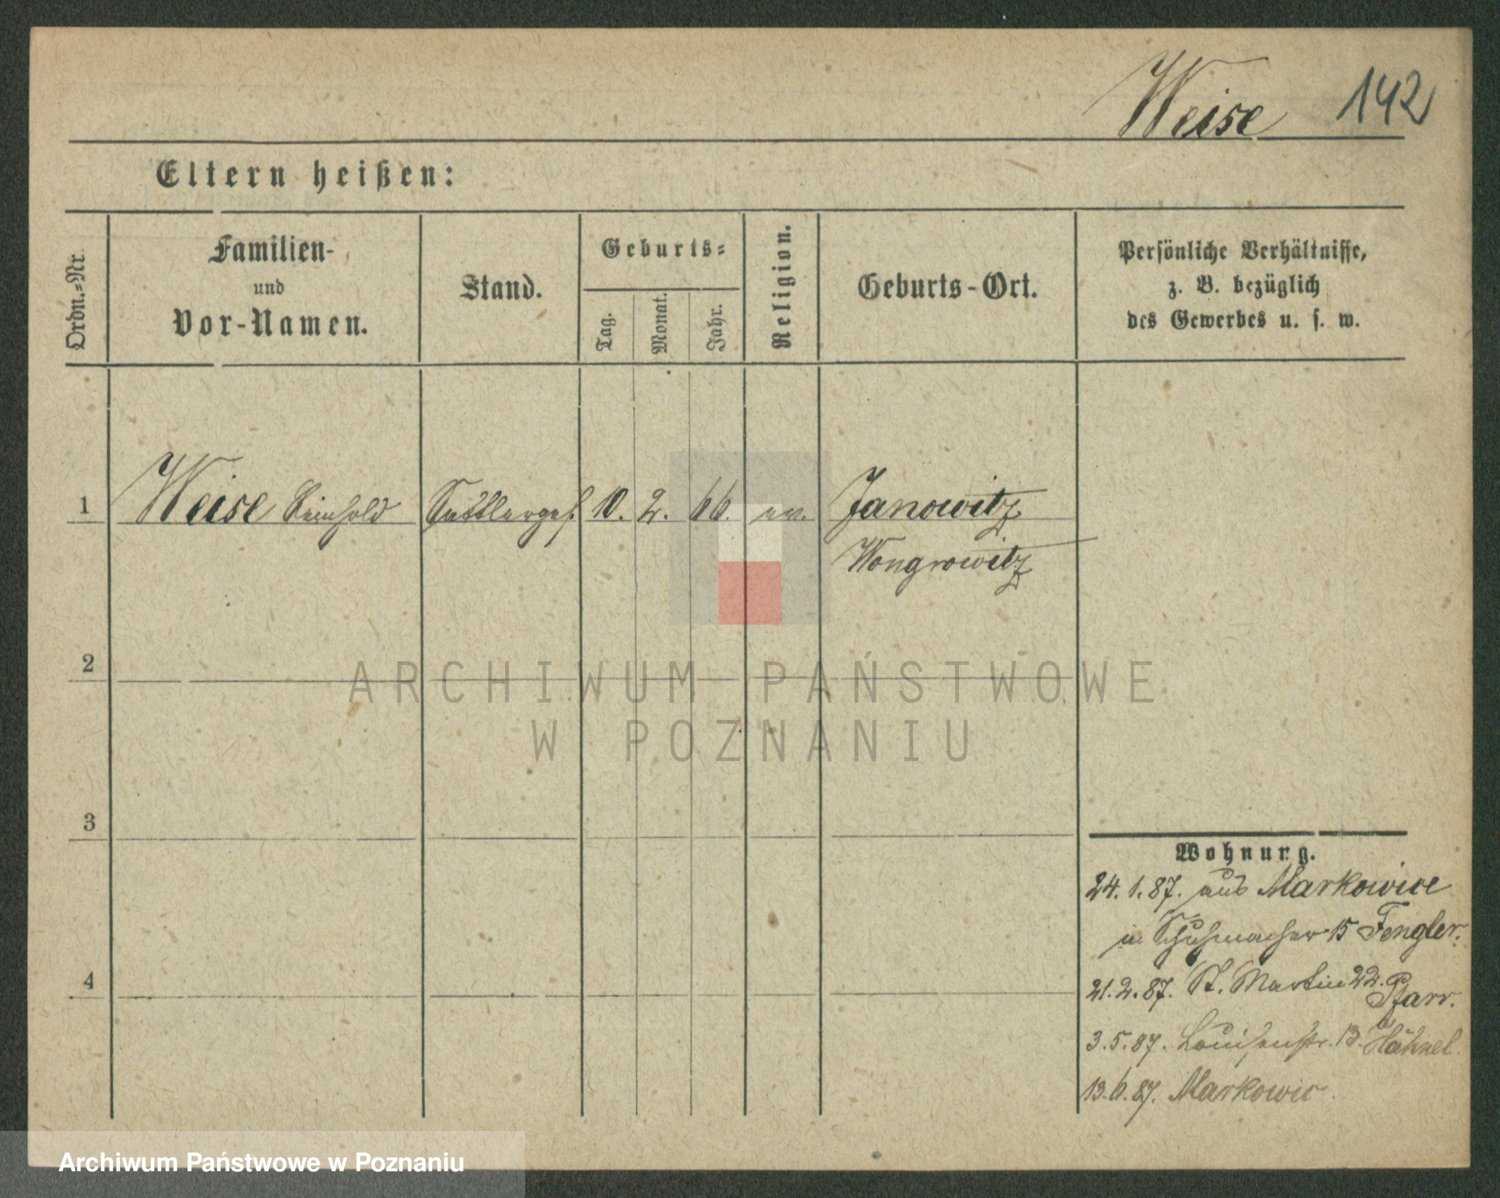 Weise 142
Eltern heißen:
Ordn.-Nr.
Familien-
und
Vor-Namen.
Stand.
Geburts-
Tag.
Monat.
Jahr.
Religion.
Geburts-Ort.
Persönliche Verhältnisse,
z. B. bezüglich
des Gewerbes u. s. w.
1 Weise Reinhold Sattlerges. 10. 2. 66. ev. Janowitz
Wongrowitz
2
3
4
Wohnung.
24.1.87. aus Markowice
n Schuhmacher 15 Fengler.
21.2.87. St. Martin 22. Pfarr.
3.5.87. Louisenstr. 13. Hähnel.
13.6.87. Markowic
ARCHIWUM PAŃSTWOWE
W POZNANIU
Archiwum Państwowe w Poznaniu